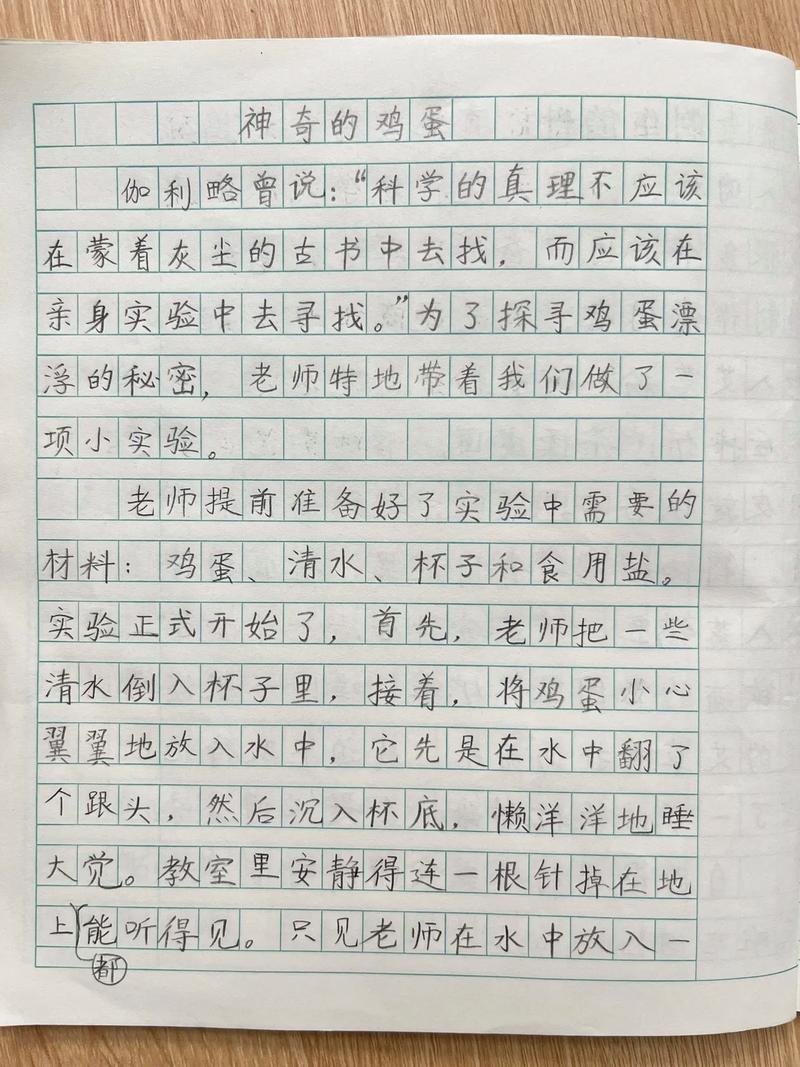 神奇的鸡蛋
伽利略曾说：“科学的真理不应该
在蒙着灰尘的古书中去找，而应该在
亲身实验中去寻找。”为了探寻鸡蛋漂
浮的秘密，老师特地带着我们做了一
项小实验。
老师提前准备好了实验中需要的
材料：鸡蛋、清水、杯子和食用盐。
实验正式开始了，首先，老师把一些
清水倒入杯子里，接着，将鸡蛋小心
翼翼地放入水中，它先是在水中翻了
个跟头，然后沉入杯底，懒洋洋地睡
大觉。教室里安静得连一根针掉在地
上能听得见。只见老师在水中放入一
都